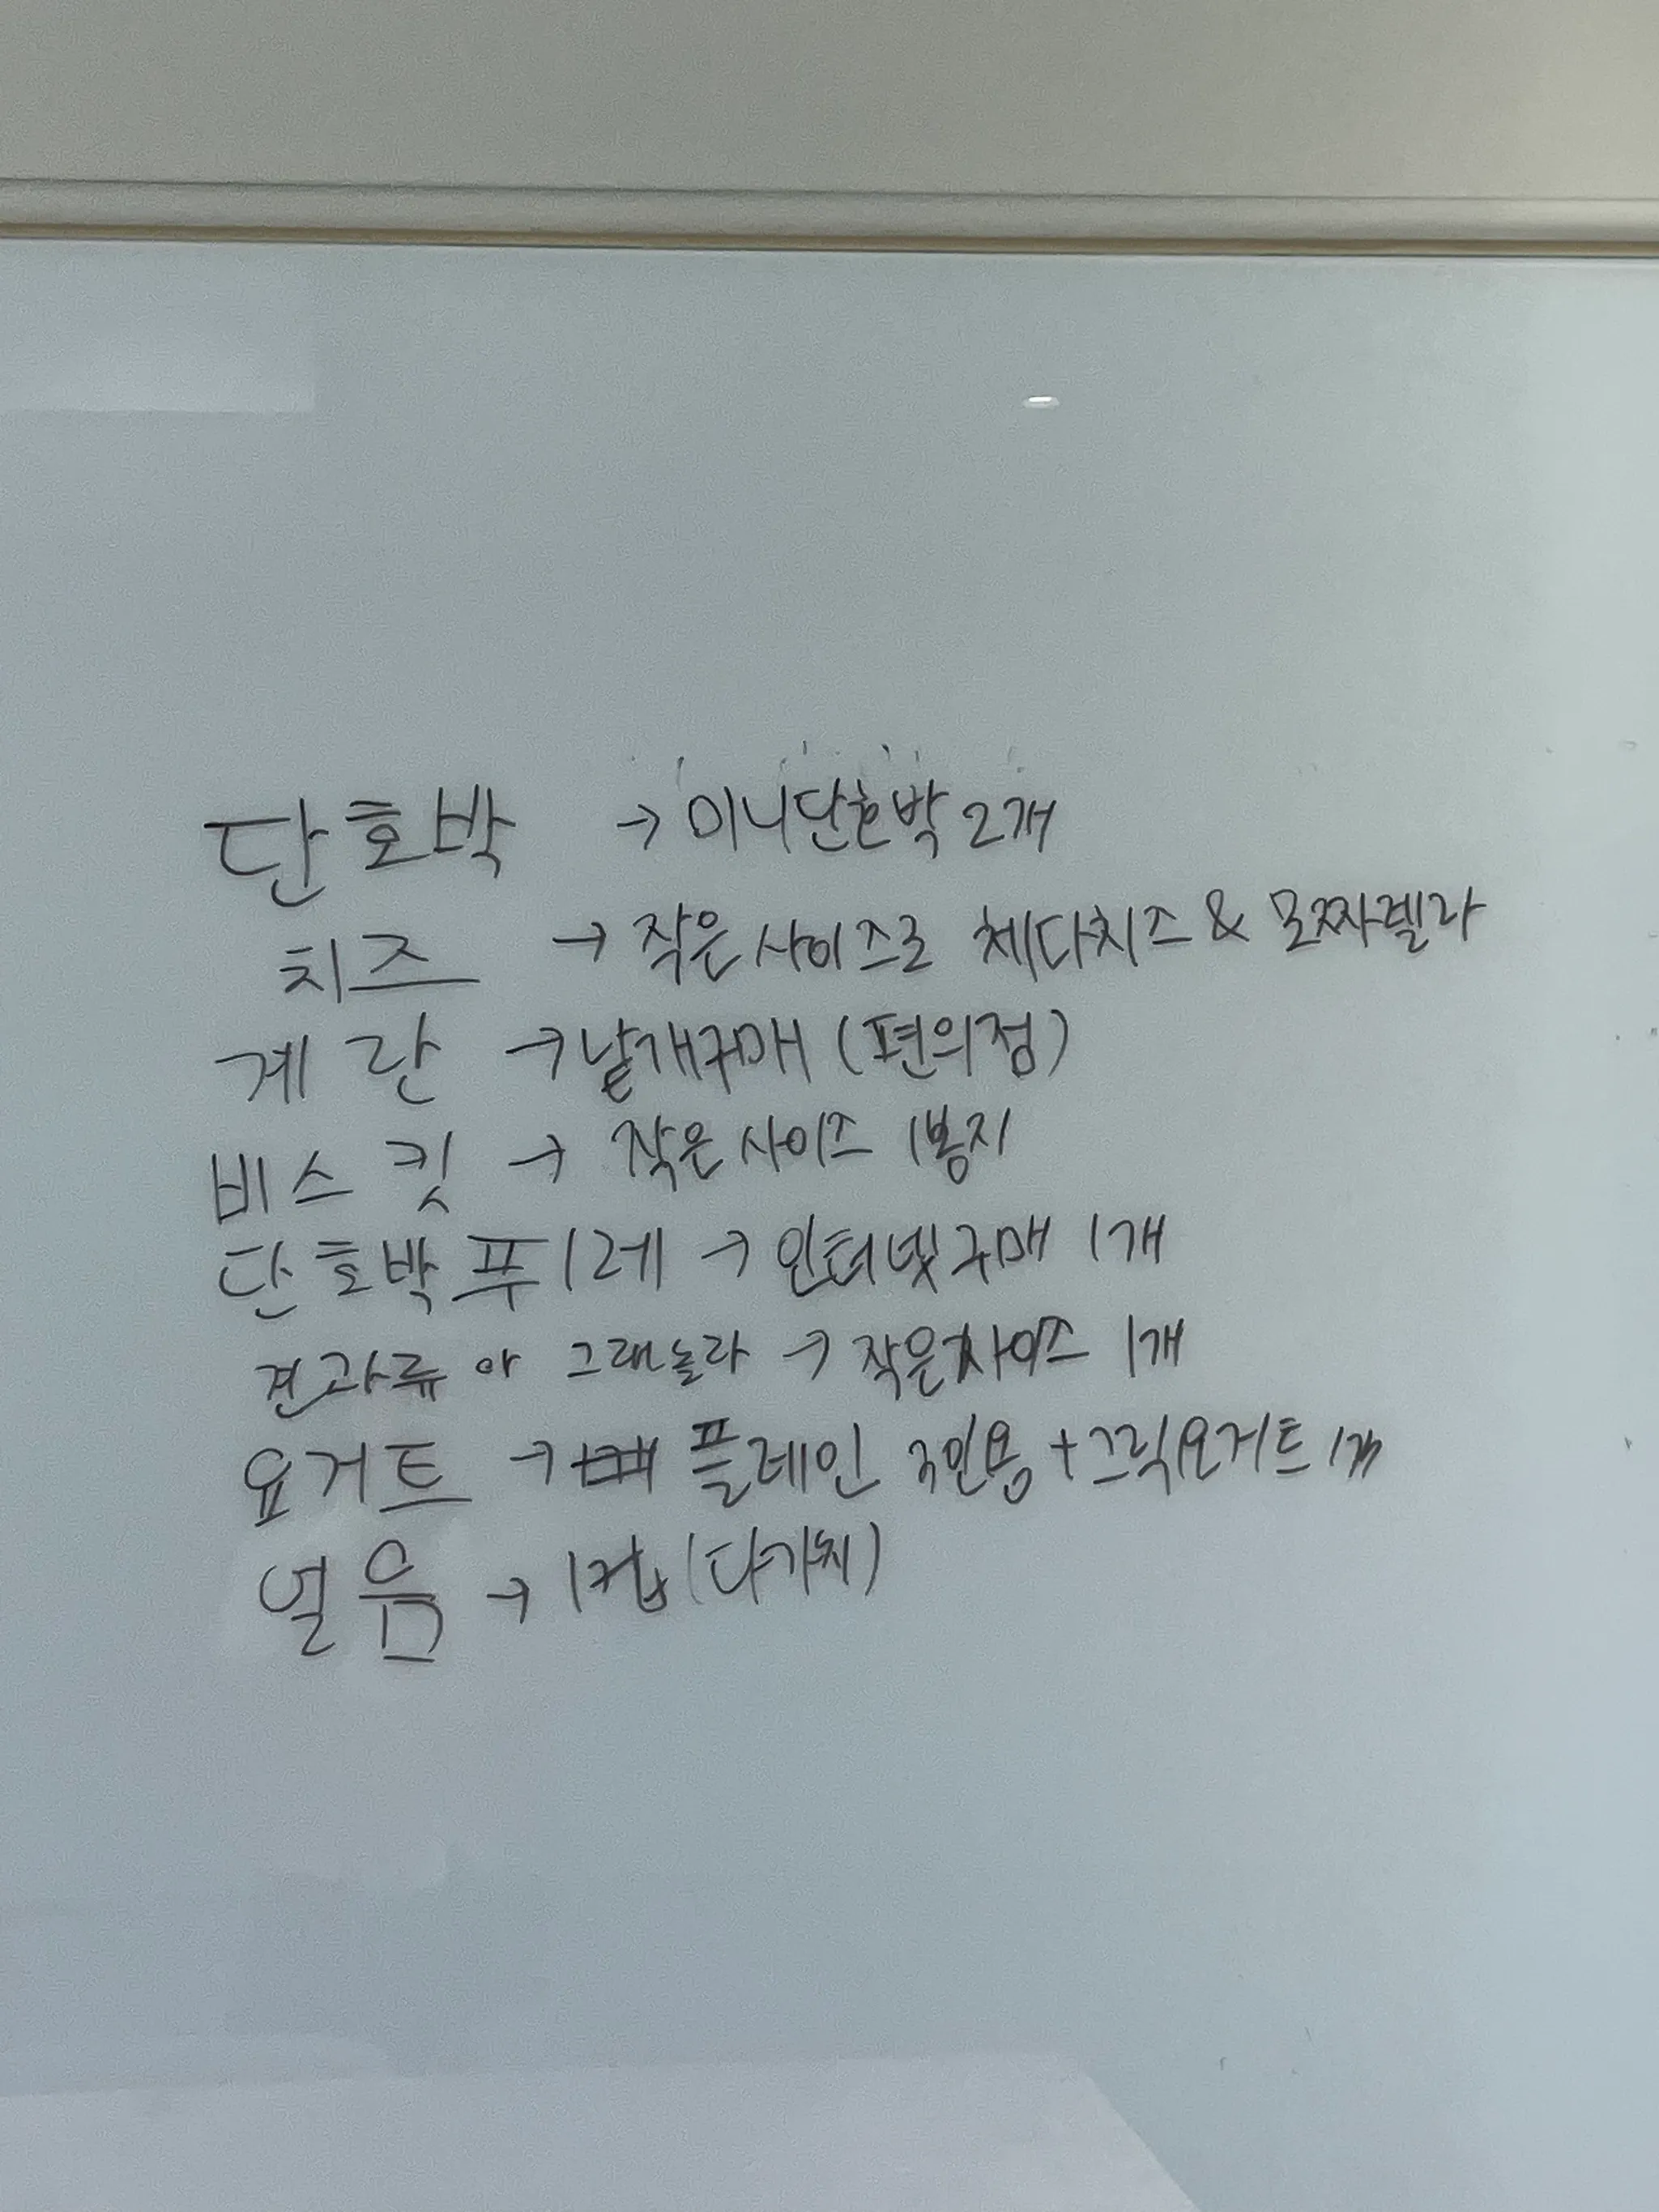 단호박 → 미니단호박 2개
치즈 → 작은 사이즈로 체다치즈 & 모짜렐라
계란 → 낱개구매 (편의점)
비스킷 → 작은 사이즈 1봉지
단호박 퓨레 → 인터넷구매 1개
견과류 야 그래놀라 → 작은사이즈 1개
요거트 → 플레인 3인용 + 그릭요거트 1개
얼음 → 1컵 (다가치)